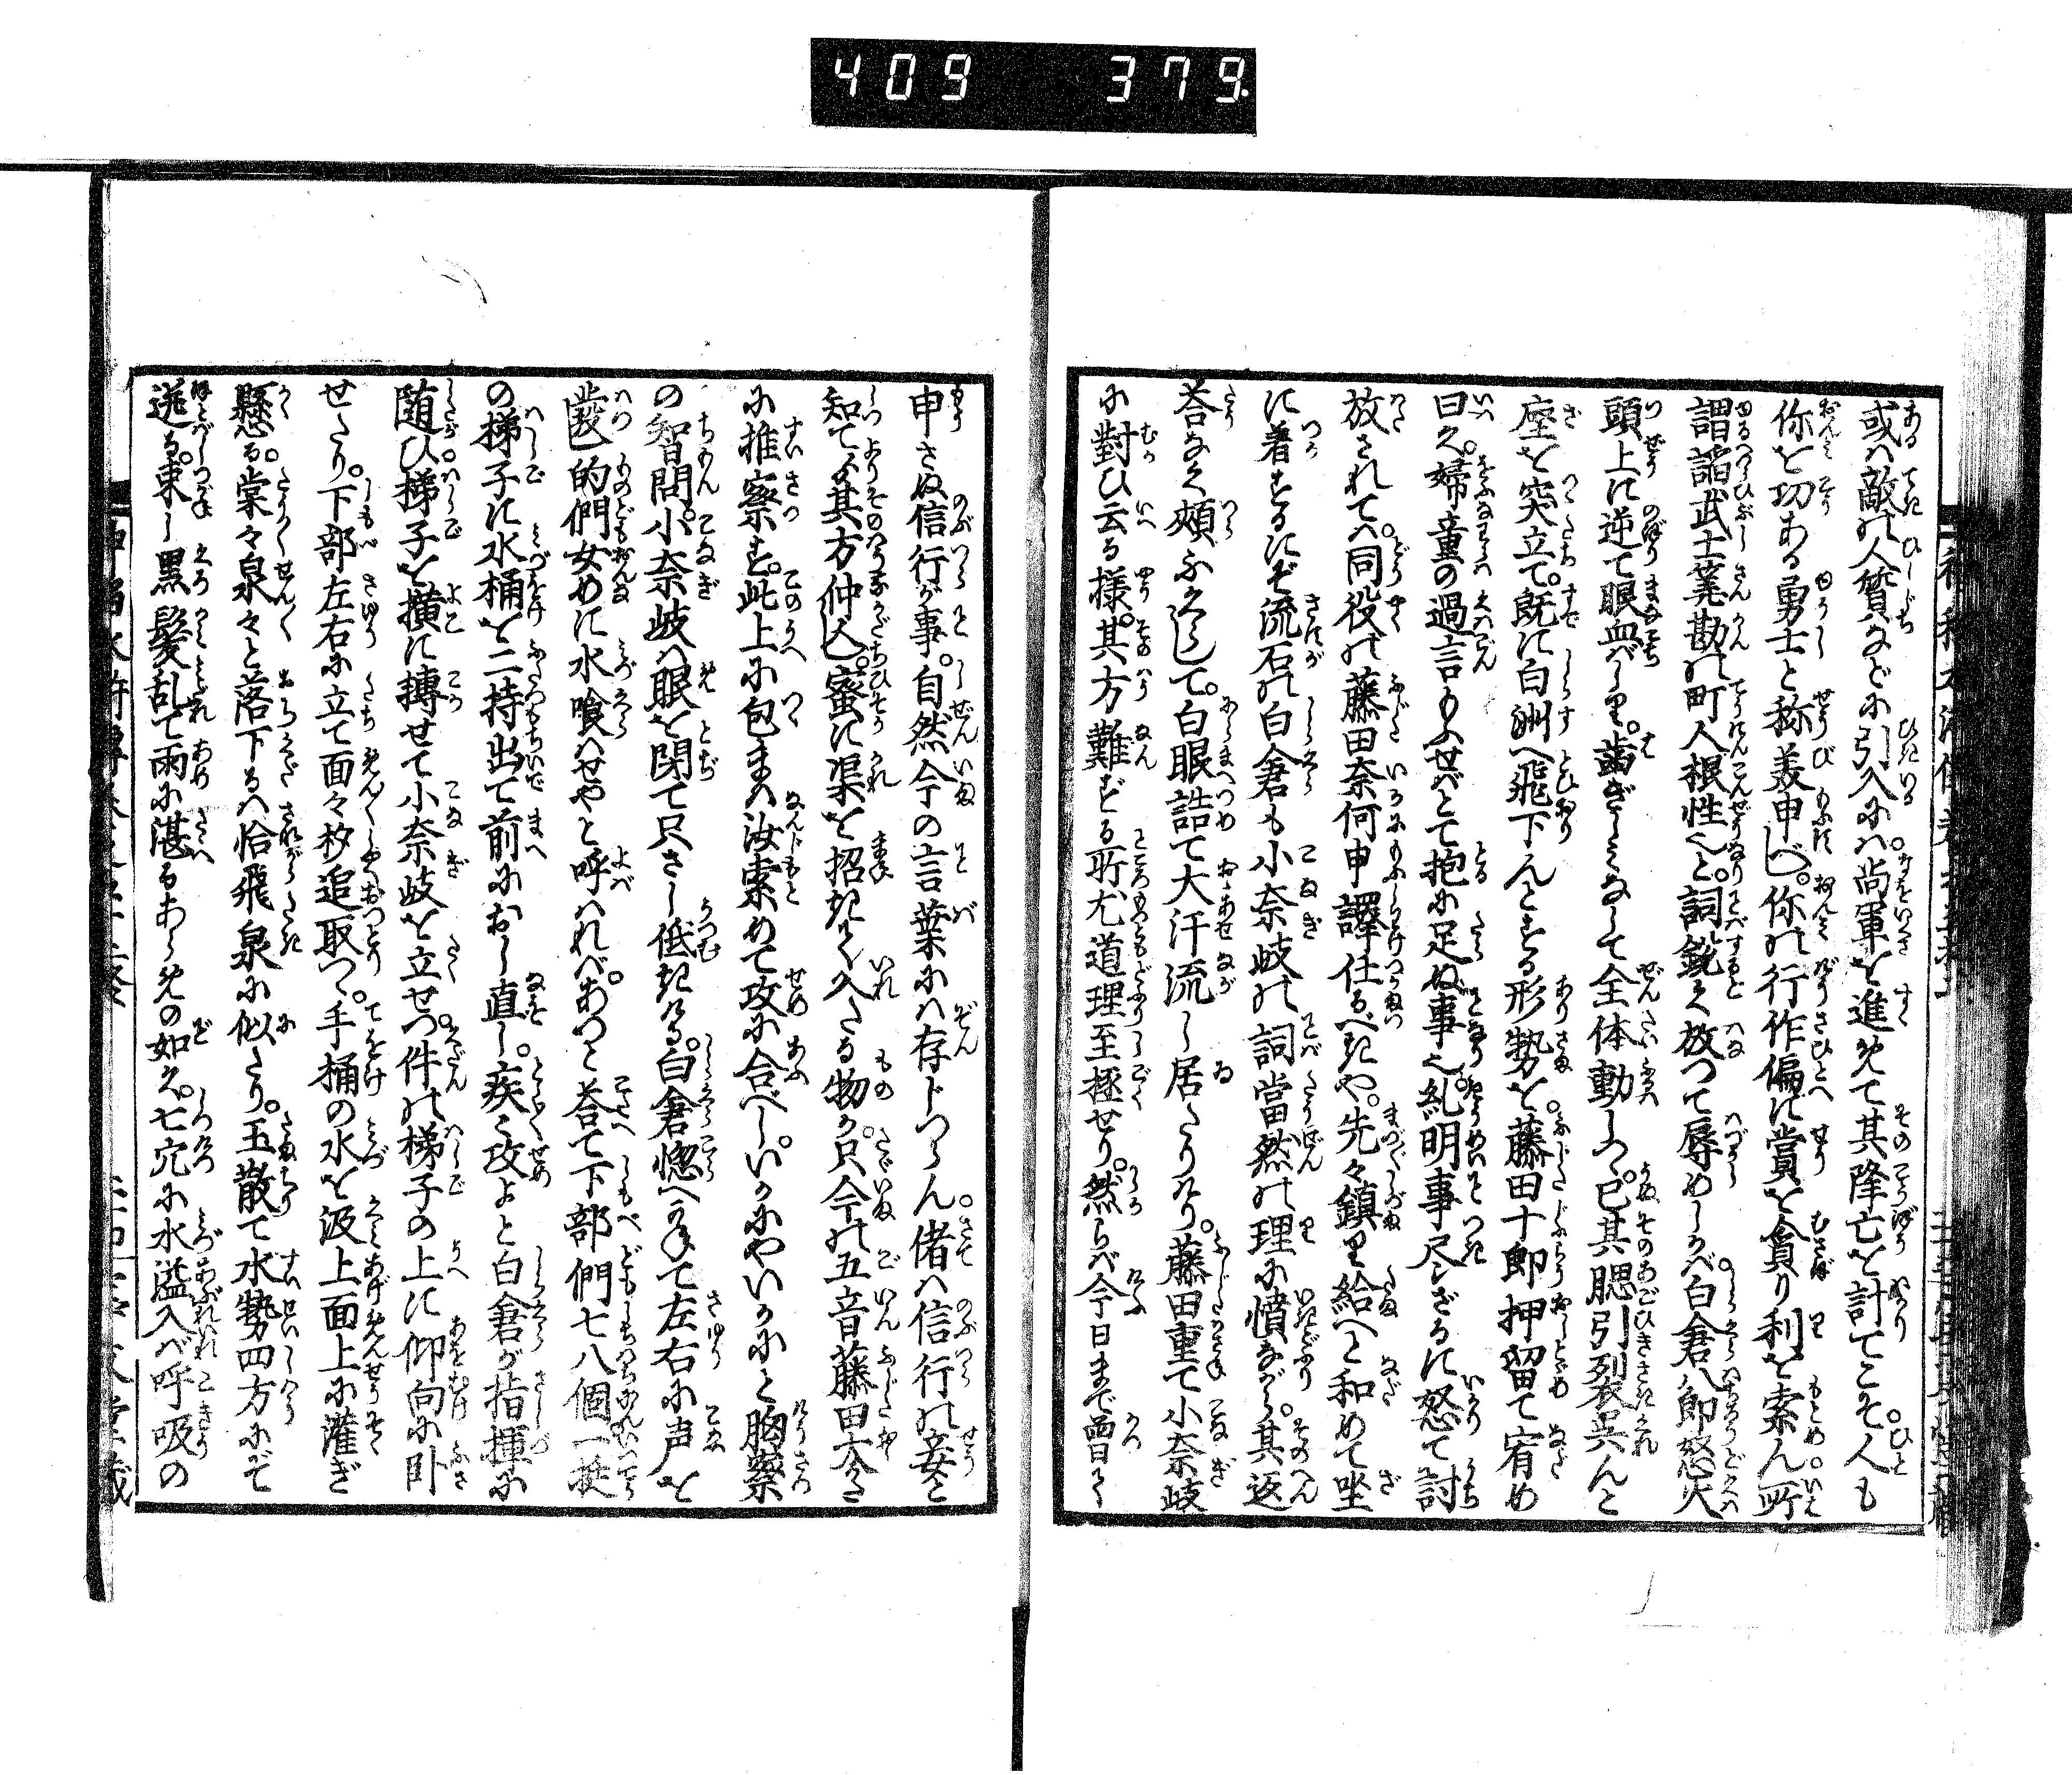 409 379
或ハ敵の人質などに引入にハ。尚軍を進めて其降亡を計てこそ。人も
你を功ある勇士と称美申べし。你の行作偏に賞を貪り利を索ん。所
謂諂武士筭勘の町人根性と。詞鋭く放つて辱めしかバ。白倉八郎怒火
頭上に逆て眼血ばしり。歯ぎしみなして全体動しつ。己其腮引裂呉んと
座を突立て。既に白洲へ飛下んとする形勢を。藤田十郎押留て宥め
曰く。婦童の過言もふせバとて抱に足ぬ事也。糺明事尽ざるに怒て討
放されてハ。同役の藤田奈何申譯仕るべきや。先々鎮り給へと和めて坐
に着するにぞ。流石の白倉も小奈岐の詞當然の理に憤ながら。其返
荅なく頬ふくらして。白眼詰て大汗流し居たりけり。藤田重て小奈岐
に對ひ云る様。其方難ずる所尤道理至極せり。然らバ今日まで曽て
申さぬ信行が事。自然今の言葉にハ存ドつらん。偖ハ信行の妾と
知てより其方仲込。蜜に渠を招きて入たる物か。只今の五音藤田大き
に推察す。此上に包まバ汝索めて攻に合べし。いかにやいかにと胸察
の智問。小奈岐ハ眼を閉て只さし低きける。白倉怺へかねて左右に声を
的們女めに水喰ハせやと呼ハれバ。あつと荅て下部們七八個一挺
の梯子に水桶を二持出て前におし直し。疾く攻よと白倉が指揮に
随ひ。梯子を横に摶せて小奈岐を立せつ。件の梯子の上に仰向に卧
せたり。下部左右に立て面々杪追取つゝ。手桶の水を汲上面上に灌ぎ
懸る。棠々泉々と落下るハ恰飛泉に似たり。玉散て水勢四方にそ
迸る。束し黒髪乱て雨に湛るあらめの如く。七穴に水溢入バ呼吸の